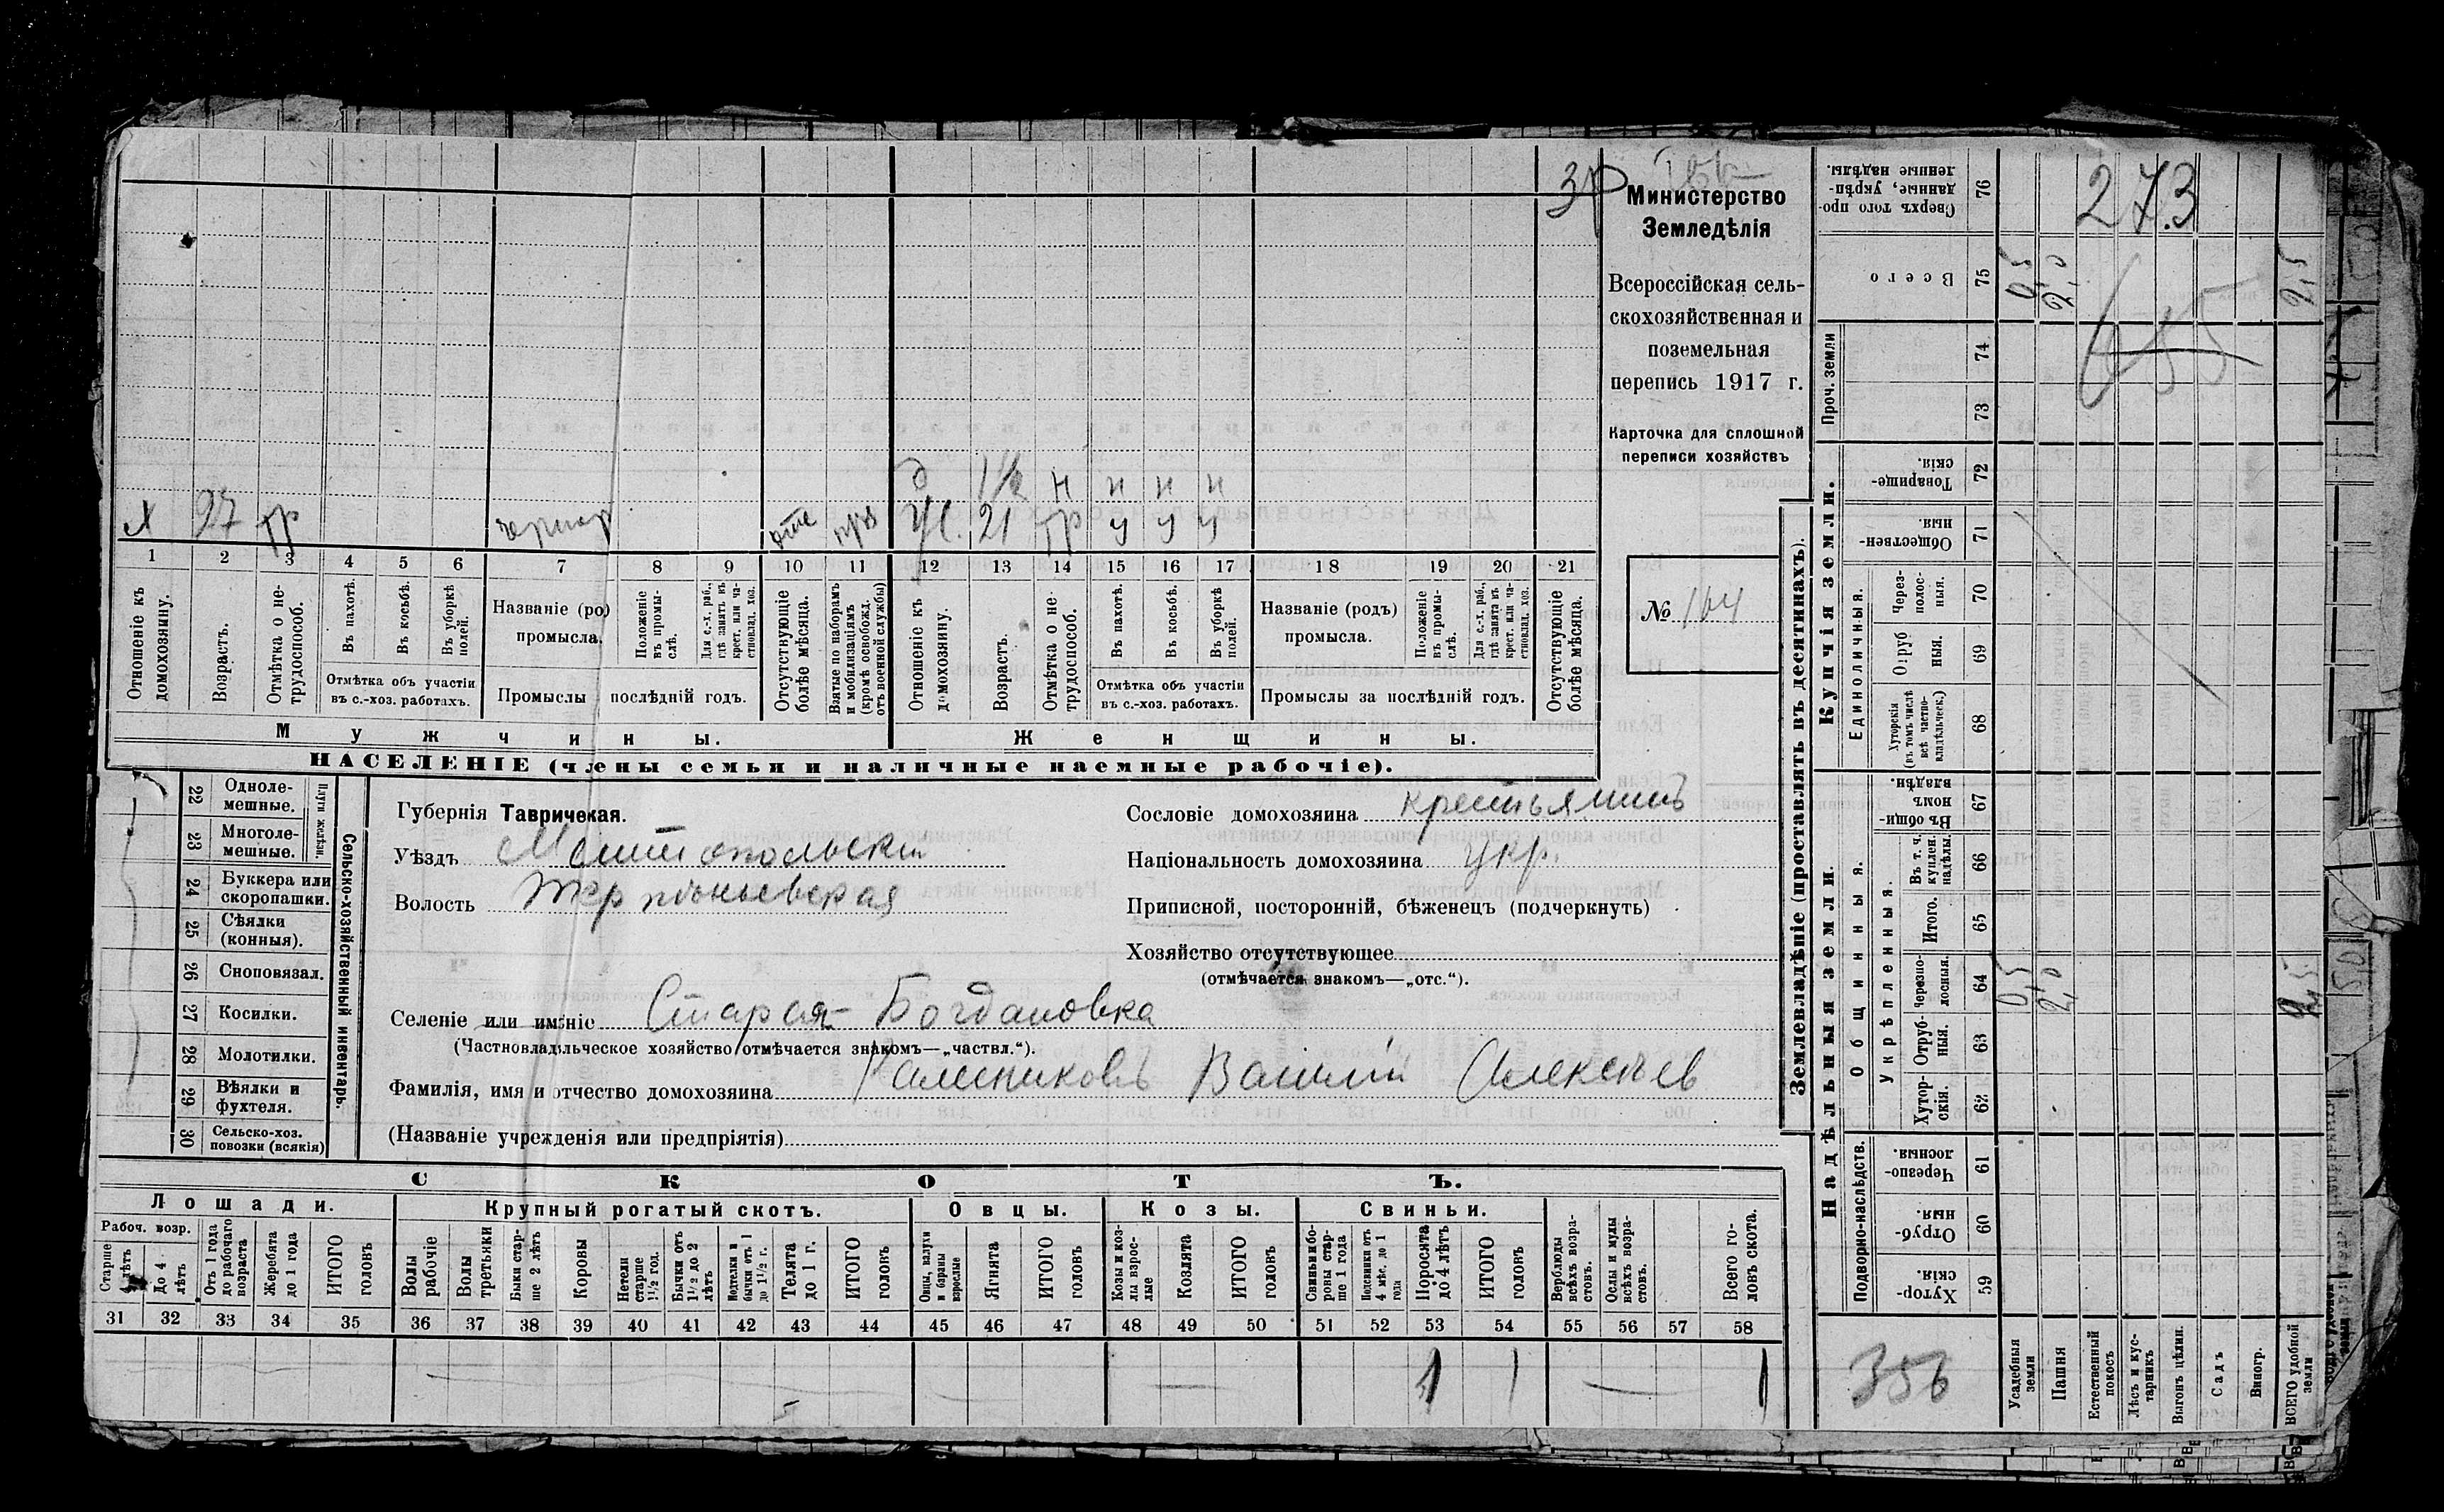 Министерство
Земледѣлія
Всероссійская сель-
скохозяйственная и
поземельная
перепись 1917 г.
Карточка для сплошной
переписи хозяйствъ
№ 164
д 1½ н н н н
х 27 тр чернор отс ж. 21 тр у у у
1 2 3 4 5 6 7 8 9 10 11 12 13 14 15 16 17 18 19 20 21
Отношеніе къ домохозяину.
Возрастъ.
Отмѣтка о не-трудоспособ.
Въ пахотѣ.
Въ косьбѣ.
Въ уборкѣ полей.
Отмѣтка объ участіи
въ с.-хоз. работахъ.
Названіе (ро)
промысла.
Положеніе въ промы-слѣ.
Для с.-х. раб., гдѣ занятъ въ крест. или ча-стновлад. хоз.
Промыслы послѣдній годъ.
Отсутствующіе болѣе мѣсяца.
Взятые по наборамъ и мобилизаціямъ (кромѣ освобожд. отъ военной службы)
Отношеніе къ домохозяину.
Возрастъ.
Отмѣтка о не-трудоспособ.
Въ пахотѣ.
Въ косьбѣ.
Въ уборкѣ полей.
Отмѣтка объ участіи
въ с.-хоз. работахъ.
Названіе (родъ)
промысла.
Положеніе въ промы-слѣ.
Для с.-х. раб., гдѣ занята въ крест. или ча-стновлад. хоз.
Промыслы за послѣдній годъ.
Отсутствующіе болѣе мѣсяца.
Мужчины.
Женщины.
НАСЕЛЕНІЕ (члены семьи и наличные наемные рабочіе).
22 Одноле-мешные.
23 Многоле-мешные.
Плуги желѣзн.
24 Буккера или скоропашки.
25 Сѣялки (конныя).
26 Сноповязал.
27 Косилки.
28 Молотилки.
29 Вѣялки и фухтеля.
30 Сельско-хоз. повозки (всякія)
Сельско-хозяйственный инвентарь.
Губернія Тавричекая.
Уѣздъ Мелитопольскій
Волость Терпѣньевская
Сословіе домохозяина крестьянинъ
Національность домохозяина укр.
Приписной, посторонній, бѣженецъ (подчеркнуть)
Хозяйство отсутствующее
(отмѣчается знакомъ—„отс.“).
Селеніе или имѣніе Старая-Богдановка
(Частновладѣльческое хозяйство отмѣчается знакомъ—„частвл.“).
Фамилія, имя и отчество домохозяина Василій Алексѣев
(Названіе учрежденія или предпріятія)
СКОТЪ.
Лошади.
Рабоч. возр.
Старше 4 лѣтъ
До 4 лѣтъ
Отъ 1 года до рабочаго возраста
Жеребята до 1 года
ИТОГО головъ
Крупный рогатый скотъ.
Волы рабочіе
Волы третьяки
Быки стар-ше 2 лѣтъ
Коровы
Нетели старше 1½ год.
Бычки отъ 1½ до 2 лѣтъ
Мотелки и бычки отъ 1 до 1½ г.
Телята до 1 г.
ИТОГО головъ
Овцы.
Овцы, валухи и бараны взрослые
Ягнята
ИТОГО головъ
Козы.
Козы и коз-лы взрос-лые
Козлята
ИТОГО головъ
Свиньи.
Свиньи и бо-ровы стар-ше 1 года
Подсвинки отъ 4 мѣс. до 1 года
Поросята до 4 лѣтъ
ИТОГО головъ
Верблюды всѣхъ возра-стовъ.
Ослы и мулы всѣхъ возра-стовъ.
Всего го-ловъ скота.
31 32 33 34 35 36 37 38 39 40 41 42 43 44 45 46 47 48 49 50 51 52 53 54 55 56 57 58
1 1 1
Землевладѣніе (проставлять въ десятинахъ).
76 Сверхъ того про-данные, укрѣп-ленные надѣлы.
273
75 Всего 0,5 2,0 2,5
Проч. земли
74
73
Купчія земли.
72 Товарище-скія.
71 Обществен-ныя.
Единоличныя.
70 Через-полос-ныя.
69 Отруб ныя.
68 Хуторскія (въ томъ числѣ всѣ частно-владѣльческ.)
Надѣльныя земли.
67 Въ общи-номъ владѣн.
Общинныя.
Укрѣпленныя.
66 Въ т. ч. куплен. надѣлы
65 Итого.
64 Черезпо-лосныя. 0,5 2,0 2,5
63 Отруб-ныя.
62 Хутор-скія.
Подворно-наслѣдств.
61 Черезпо-лосныя.
60 Отруб-ныя.
59 Хутор-скія.
356
Усадебныя земли
Пашня
Естественный покосъ
Лѣсъ и кус-тарникъ
Выгонъ цѣлин.
Садъ
Виногр.
ВСЕГО удобной земли